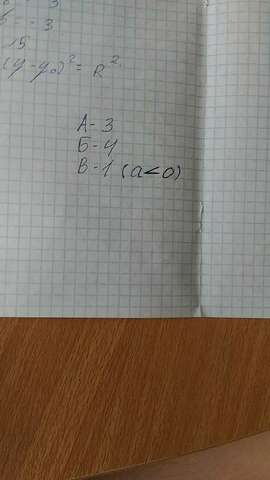 = -3
15
(y-y₀)²= R²
А-3
Б=4
В-1 (a<0)